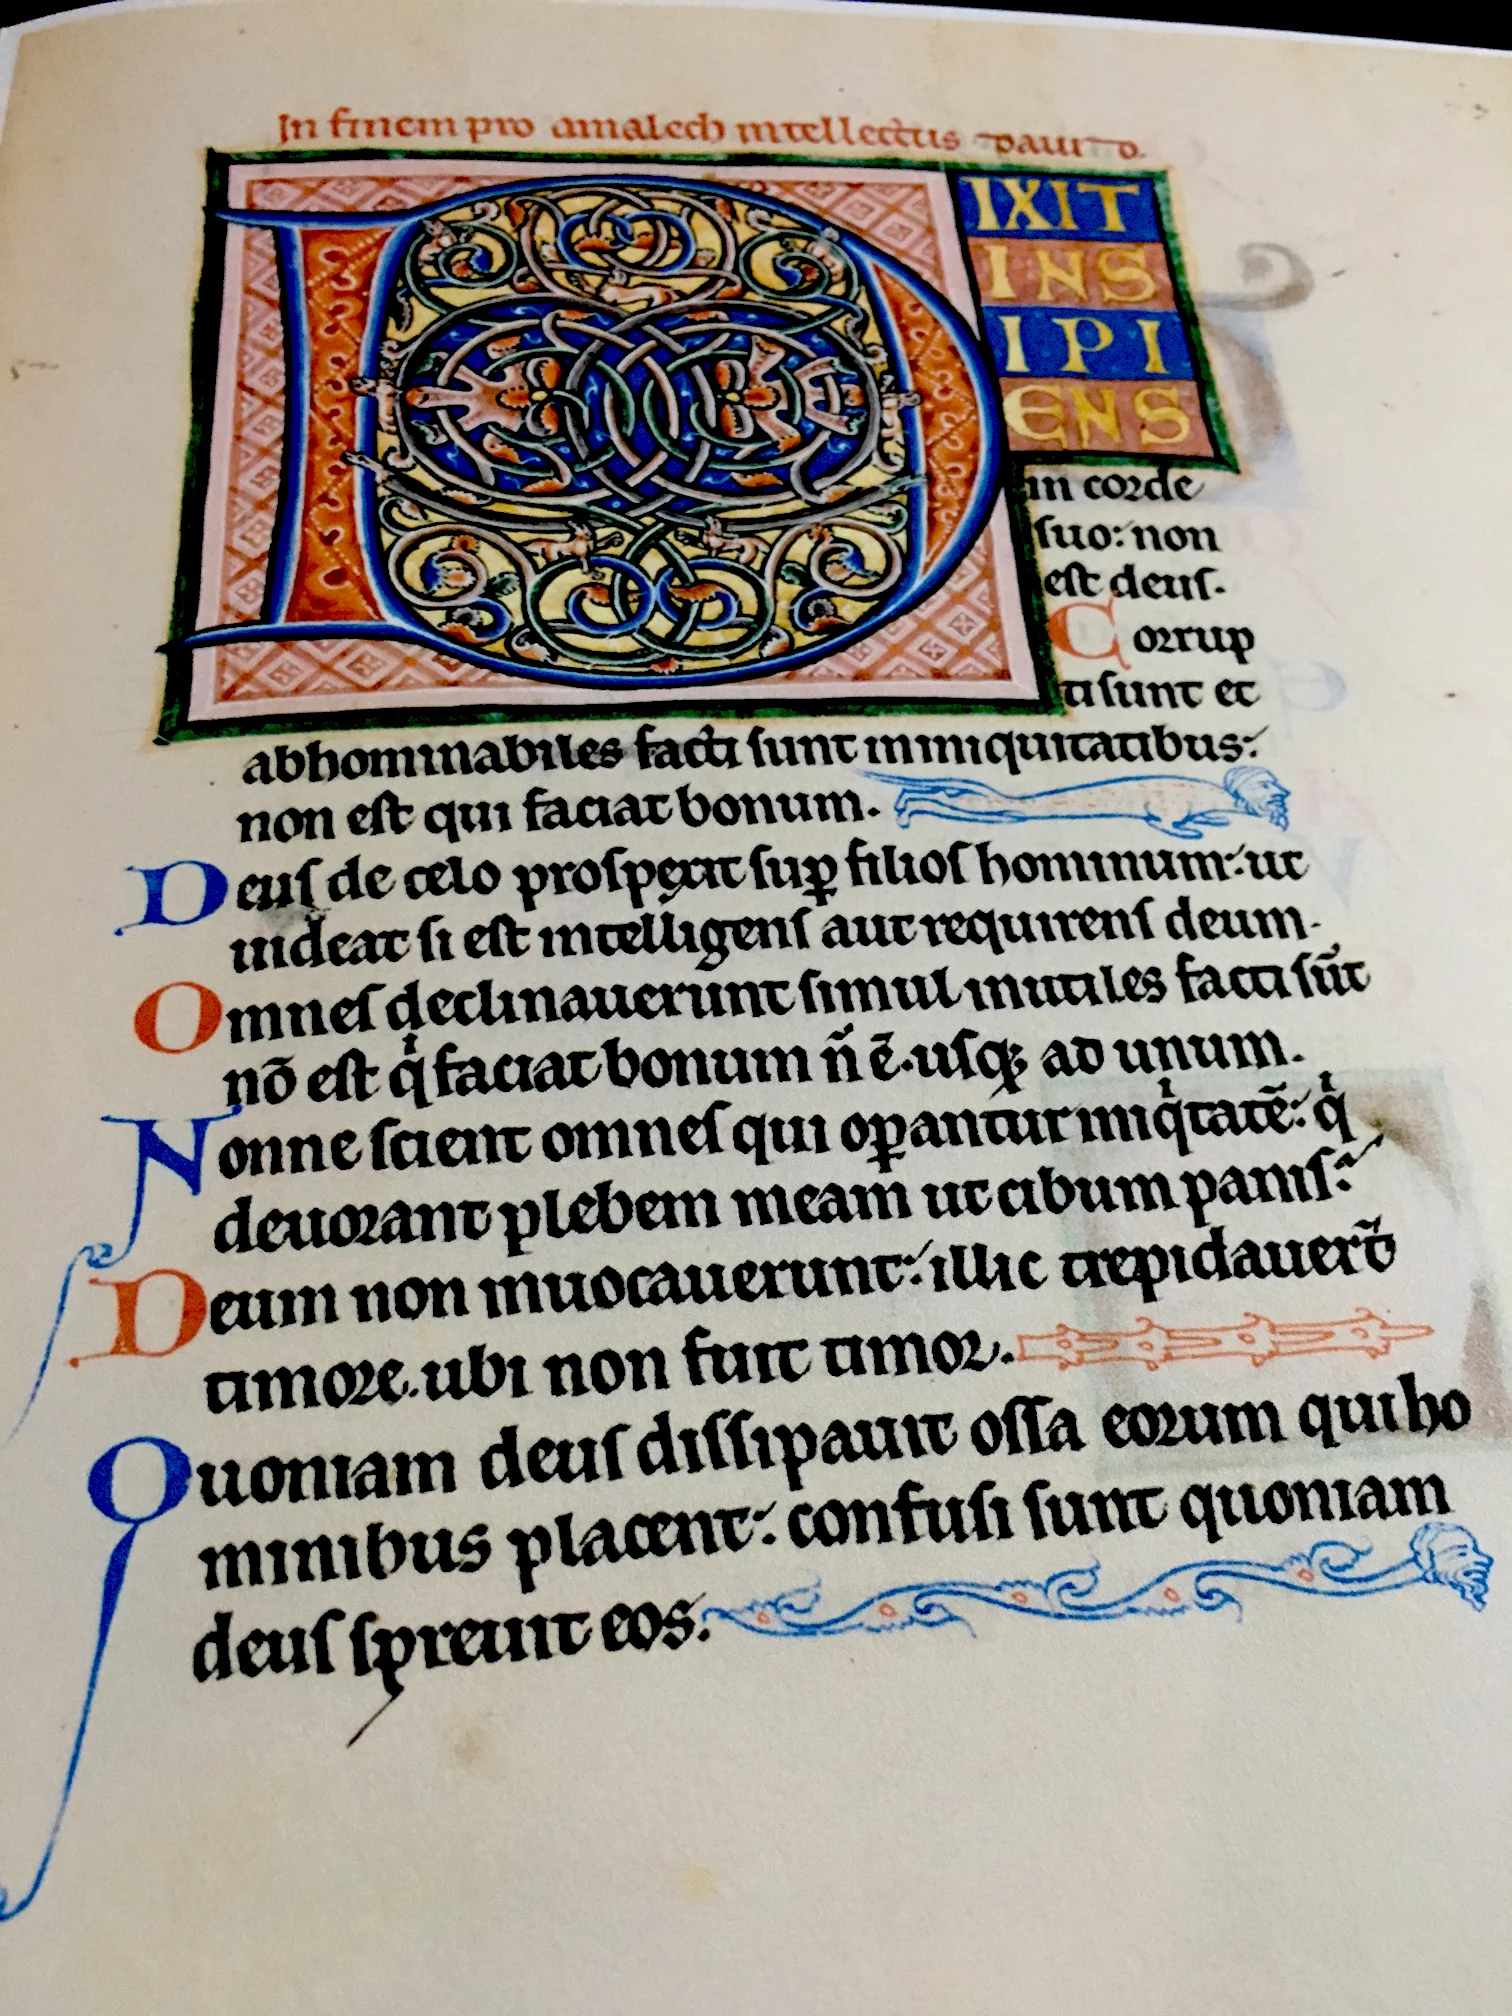 In finem pro amalech intellectus dauid.
DIXIT
INS
IPI
ENS
in corde
suo: non
est deus.
Corrup
ti sunt et
abhominabiles facti sunt in iniquitatibus:
non est qui faciat bonum.
Deus de celo prospexit sup̄ filios hominum: ut
uideat si est intelligens aut requirens deum.
Omnes declinauerunt simul inutiles facti sūt
nō est qͥ faciat bonum n̄ ē. usqꝫ ad unum.
Nonne scient omnes qui oꝑantur iniqͥtatē: qͥ
deuorant plebem meam ut cibum panis:
Deum non inuocauerunt: illic trepidauer̄t
timore. ubi non fuit timor.
Quoniam deus dissipauit ossa eorum qui ho
minibus placent: confusi sunt quoniam
deus spreuit eos.